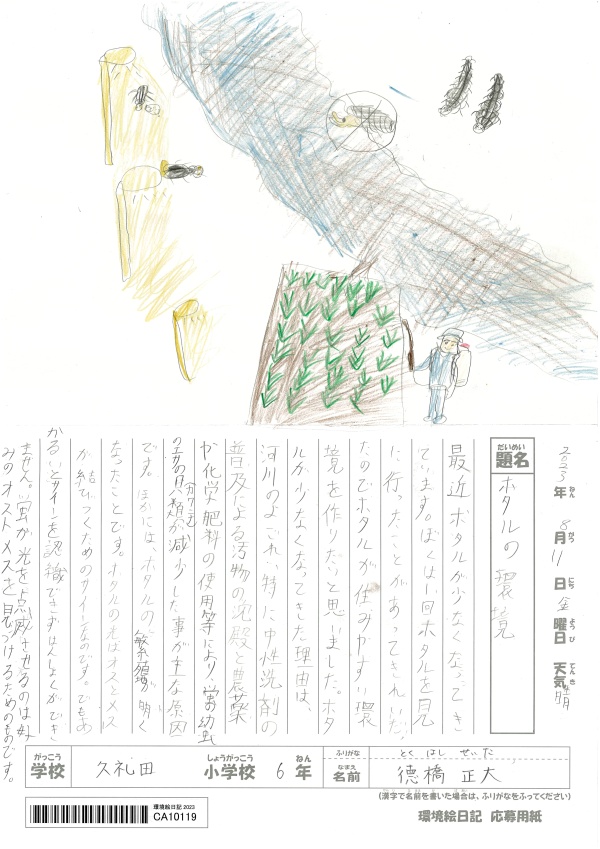 2023年 8月 11日 金曜日 天気 晴
ねん がつ にち ようび てんき
だいめい
題名 ホタルの環境
最近ホタルが少なくなってき
ています。ぼくは1回ホタルを見
に行ったことがあってきれいだっ
たのでホタルが住みやすい環
境を作りたいと思いました。ホタ
ルが少なくなってきた理由は、
河川のよごれ、特に中性洗剤の
普及による汚物の沈殿と農薬
や化学肥料の使用等により、蛍の幼虫
のエサの貝類(カワニナ)が減少した事が主な原因
です。ほかには、ホタルの繁殖が明く
なったことです。ホタルの光はオスとメス
が結びつくためのサインなのです。でもあ
かるいとサインを認識できずはんしょくができ
ません。蛍が光を点滅させるのは好
みのオスとメスを見つけるためのものです。
がっこう
学校 久礼田
しょうがっこう ねん
小学校 6年
ふりがな とくはし せいた
なまえ
名前 徳橋 正大
(漢字で名前を書いた場合は、ふりがなをふってください)
環境絵日記 2023
CA10119
環境絵日記 応募用紙